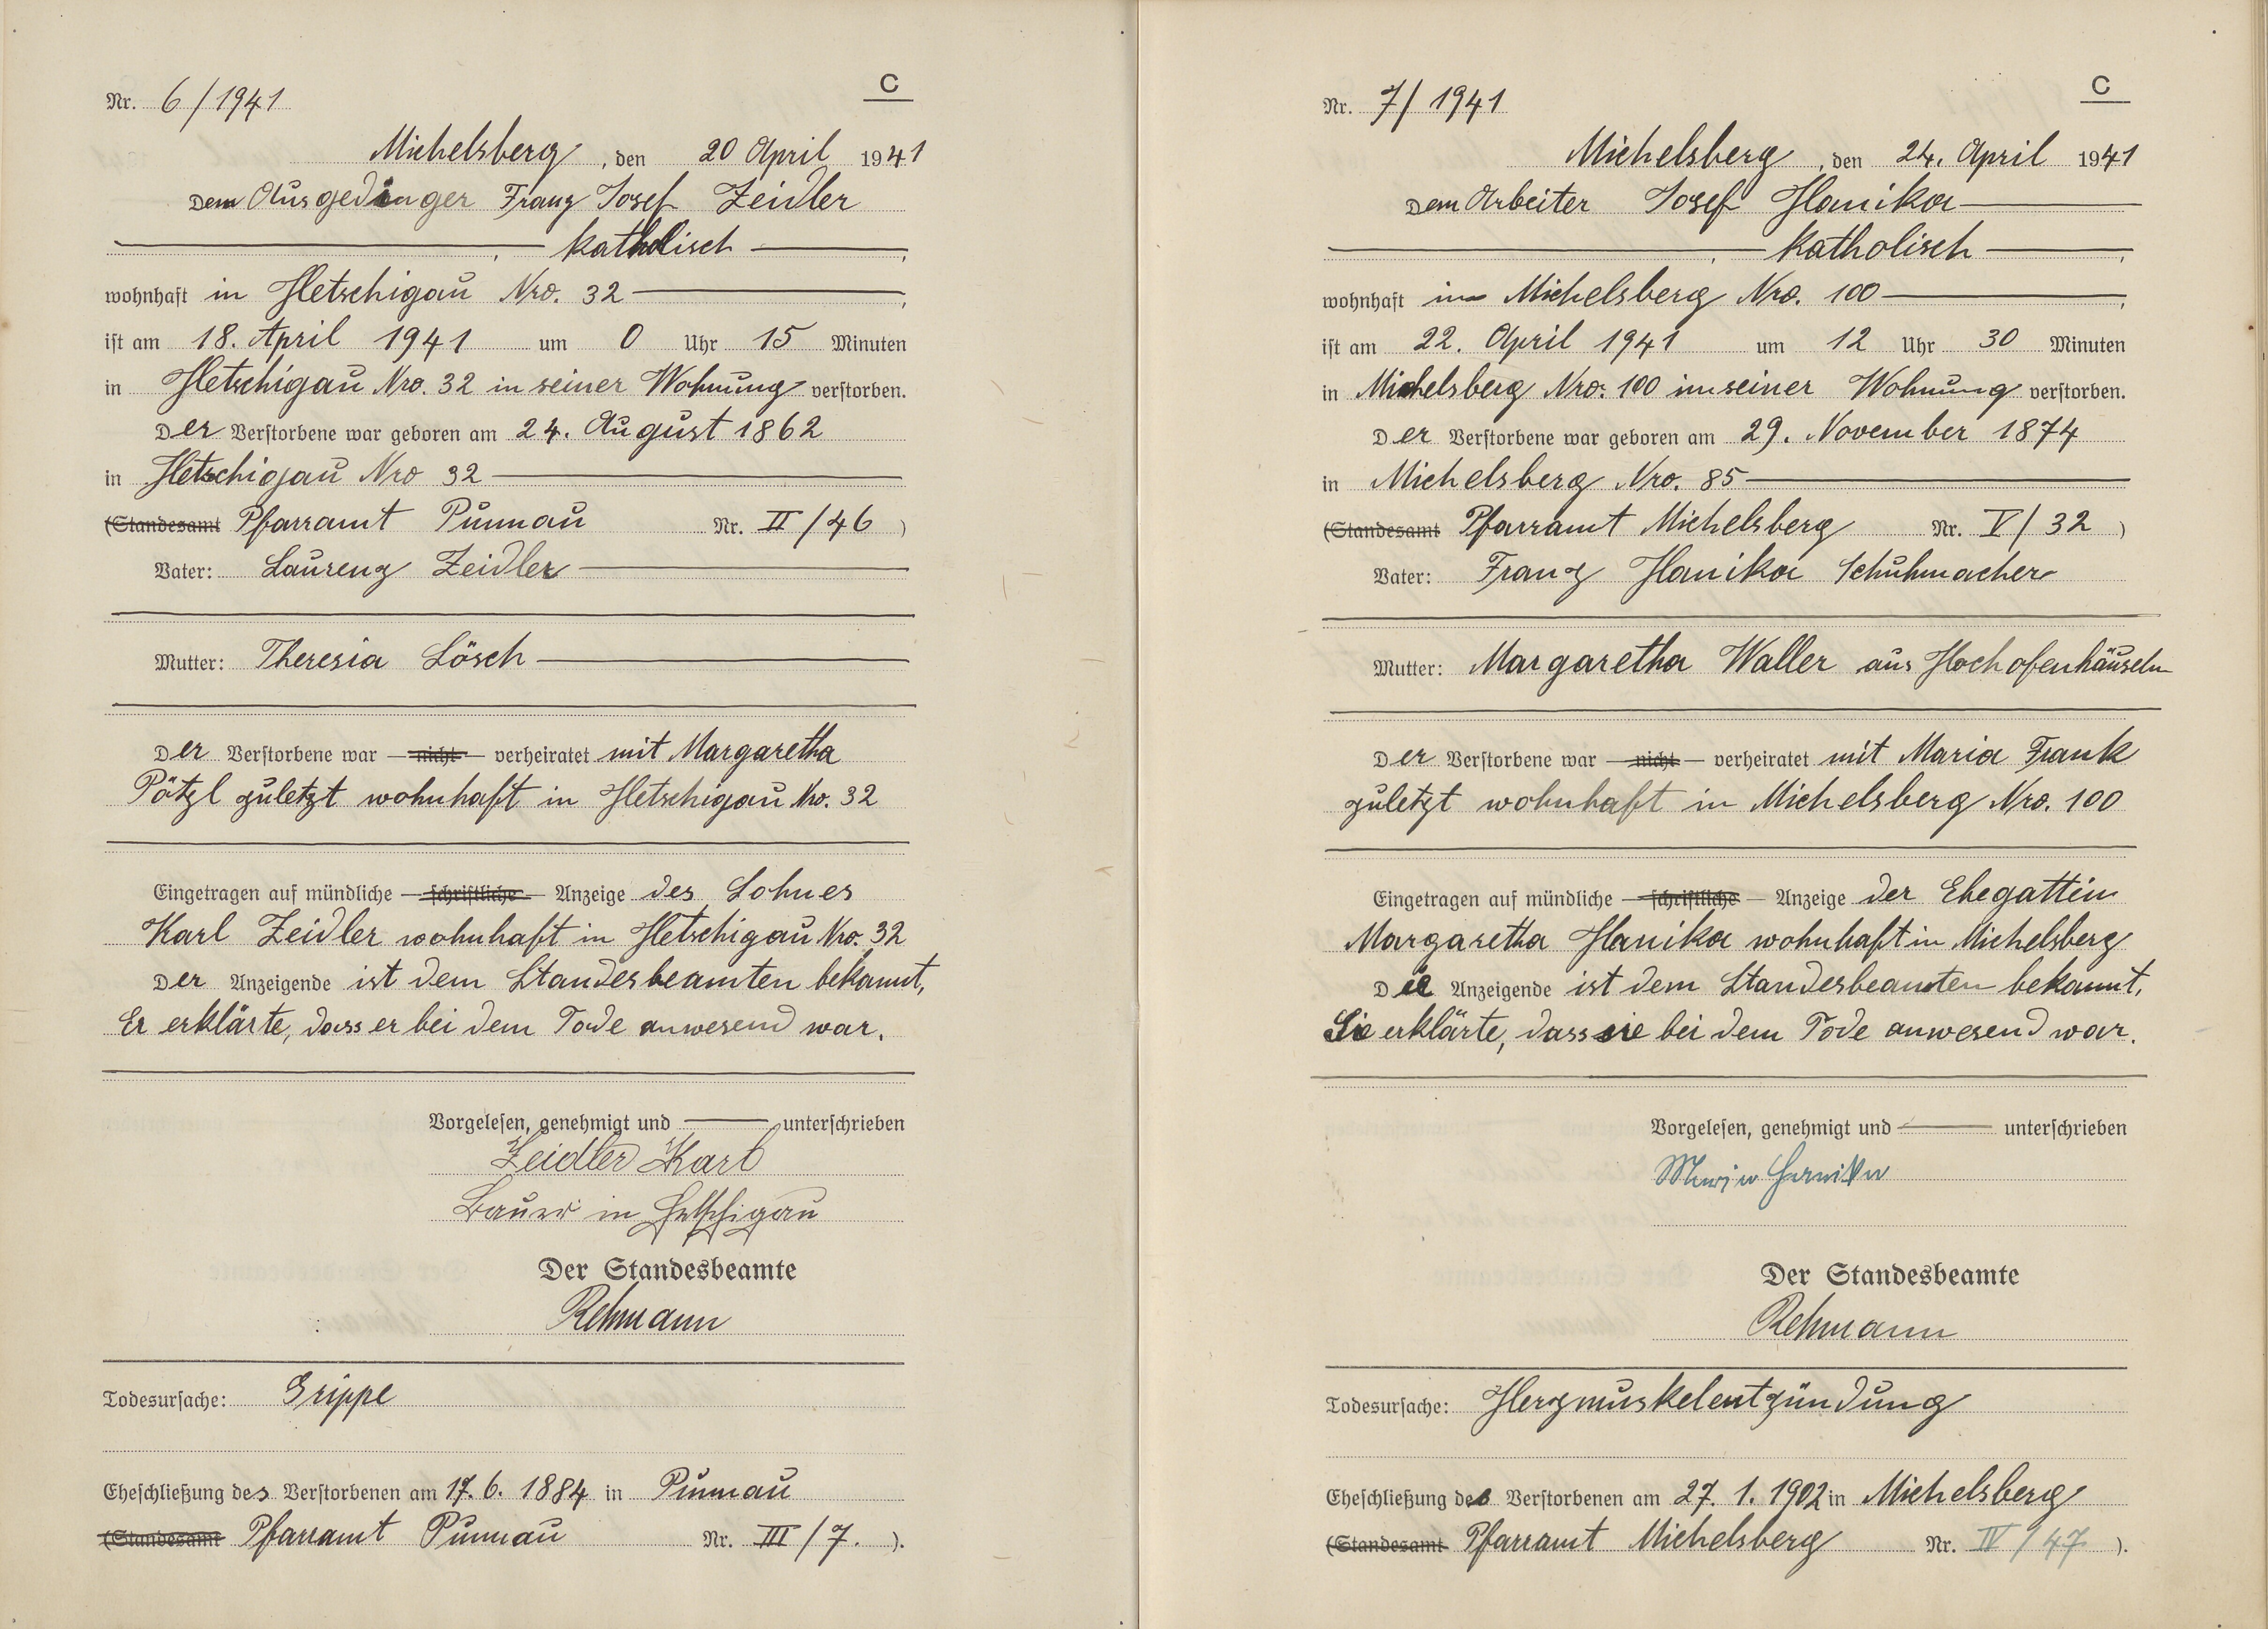 C
Nr. 6/1941
Michelsberg, den 20 April 1941
Dem Ausgedinger Franz Josef Zeidler
katholisch
wohnhaft in Hetschigau Nro. 32
ist am 18. April 1941 um 0 Uhr 15 Minuten
in Hetschigau Nro. 32 in seiner Wohnung verstorben.
Der Verstorbene war geboren am 24. August 1862
in Hetschigau Nro 32
(Standesamt Pfarramt Punnau Nr. II/46)
Vater: Laurenz Zeidler
Mutter: Theresia Lösch
Der Verstorbene war – nicht – verheiratet mit Margaretha
Pötzl zuletzt wohnhaft in Hetschigau Nro. 32
Eingetragen auf mündliche – schriftliche – Anzeige des Sohnes
Karl Zeidler wohnhaft in Hetschigau Nro. 32
Der Anzeigende ist dem Standesbeamten bekannt,
Er erklärte, dass er bei dem Tode anwesend war.
Vorgelesen, genehmigt und unterschrieben
Zeidler Karl
Bauer in Hetschigau
Der Standesbeamte
Rehmann
Todesursache: Grippe
Eheschließung des Verstorbenen am 17. 6. 1884 in Punnau
(Standesamt Pfarramt Punnau Nr. III/7.).
C
Nr. 7/1941
Michelsberg, den 24. April 1941
Dem Arbeiter Josef Hanika
katholisch
wohnhaft in Michelsberg Nro. 100
ist am 22. April 1941 um 12 Uhr 30 Minuten
in Michelsberg Nro. 100 in seiner Wohnung verstorben.
Der Verstorbene war geboren am 29. November 1874
in Michelsberg Nro. 85
(Standesamt Pfarramt Michelsberg Nr. V/32)
Vater: Franz Hanika Schuhmacher
Mutter: Margaretha Waller aus Hochofenhäuseln
Der Verstorbene war – nicht – verheiratet mit Maria Frank
zuletzt wohnhaft in Michelsberg Nro. 100
Eingetragen auf mündliche – schriftliche – Anzeige der Ehegattin
Margaretha Hanika wohnhaft in Michelsberg
Die Anzeigende ist dem Standesbeamten bekannt,
Sie erklärte, dass sie bei dem Tode anwesend war.
Vorgelesen, genehmigt und unterschrieben
Maria Hanika
Der Standesbeamte
Rehmann
Todesursache: Herzmuskelentzündung
Eheschließung des Verstorbenen am 27. 1. 1902 in Michelsberg
(Standesamt Pfarramt Michelsberg Nr. IV/47).